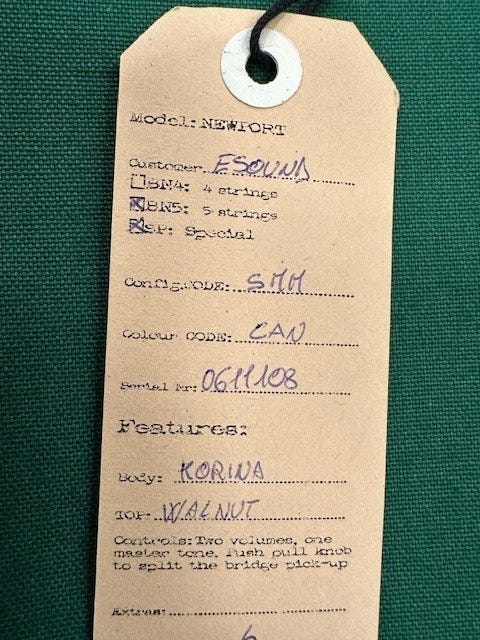 Model: NEWPORT
Customer ESOUND
BN4: 4 strings
BN5: 5 strings
SP: Special
Config.CODE: SMM
Colour CODE: CAN
Serial Nr: 0611108
Features:
Body: KORINA
TOP- WALNUT
Controls: Two volumes, one
master tone. Push pull knob
to split the bridge pick-up
Extras: